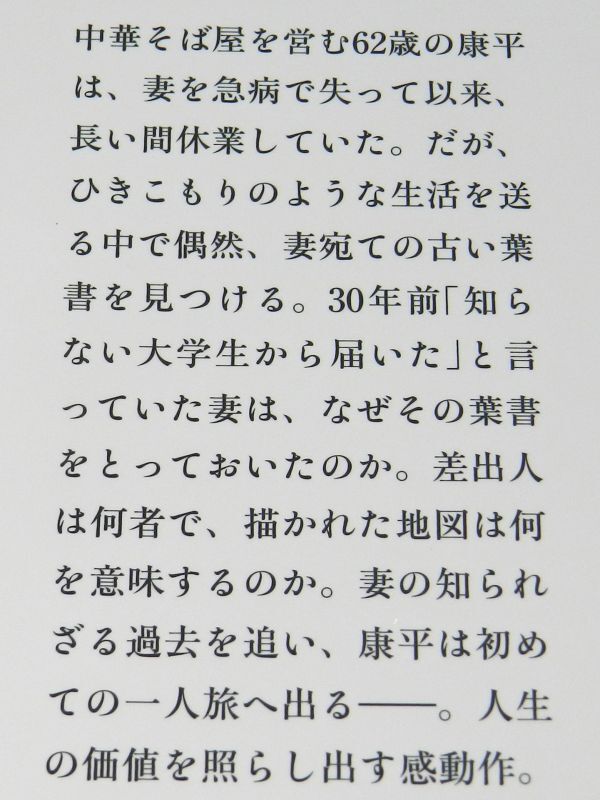 中華そば屋を営む62歳の康平
は、妻を急病で失って以来、
長い間休業していた。だが、
ひきこもりのような生活を送
る中で偶然、妻宛ての古い葉
書を見つける。30年前「知ら
ない大学生から届いた」と言
っていた妻は、なぜその葉書
をとっておいたのか。差出人
は何者で、描かれた地図は何
を意味するのか。妻の知られ
ざる過去を追い、康平は初め
ての一人旅へ出る――。人生
の価値を照らし出す感動作。